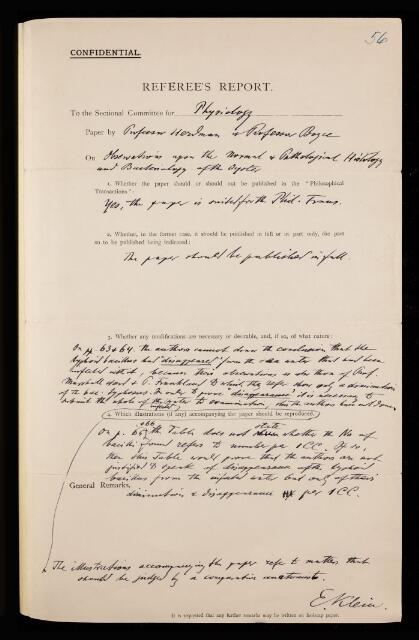 56
CONFIDENTIAL.
REFEREE'S REPORT.
To the Sectional Committee for Physiology
Paper by Professor Herdman & Professor Boyce
On Observations upon the Normal & Pathological Histology
and Bacteriology of the Oyster
1. Whether the paper should or should not be published in the "Philosophical
Transactions":
Yes, the paper is suited for the Phil. Trans.
2. Whether, in the former case, it should be published in full or in part only, the part
so to be published being indicated:
The paper should be published in full.
3. Whether any modifications are necessary or desirable, and, if so, of what nature:
On pp. 63 & 64. The authors cannot draw the conclusion that the
typhoid bacillus had "disappeared" from the sea water that had been
infected with it, because their observations as also those of Prof.
Marshall Ward & P. Frankland to which they refer show only a diminution
of the bac. typhosus. In order to prove disappearance it is necessary to
submit the whole of the water to examination, this the authors have not done.
4. Which illustrations (if any) accompanying the paper should be reproduced.
On p. 65 & 66 the Table does not state whether the No of
bacilli found refers to number per 1 CC. If so,
then this Table would prove that the authors are not
justified to speak of disappearance of the typhoid
bacillus from the infected water but only of their
General Remarks,
diminution & disappearance per 1 CC.
The illustrations accompanying the paper refer to matters that
should be judged by a comparative anatomist.
E. Klein.
It is requested that any further remarks may be written on foolscap paper.